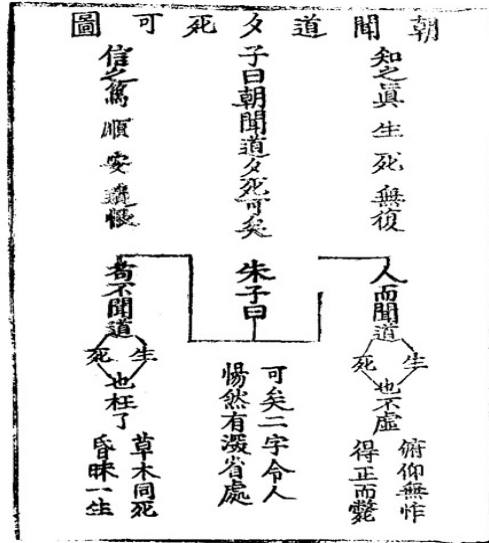 朝聞道夕死可圖
知之眞生死無復
子曰朝聞道夕死可矣
信之篤順安遺恨
人而聞道
生
死
也不虛
俯仰無怍
得正而斃
朱子曰
可矣二字令人
惕然有深省處
若不聞道
生
死
也枉了
草木同死
昏昧一生